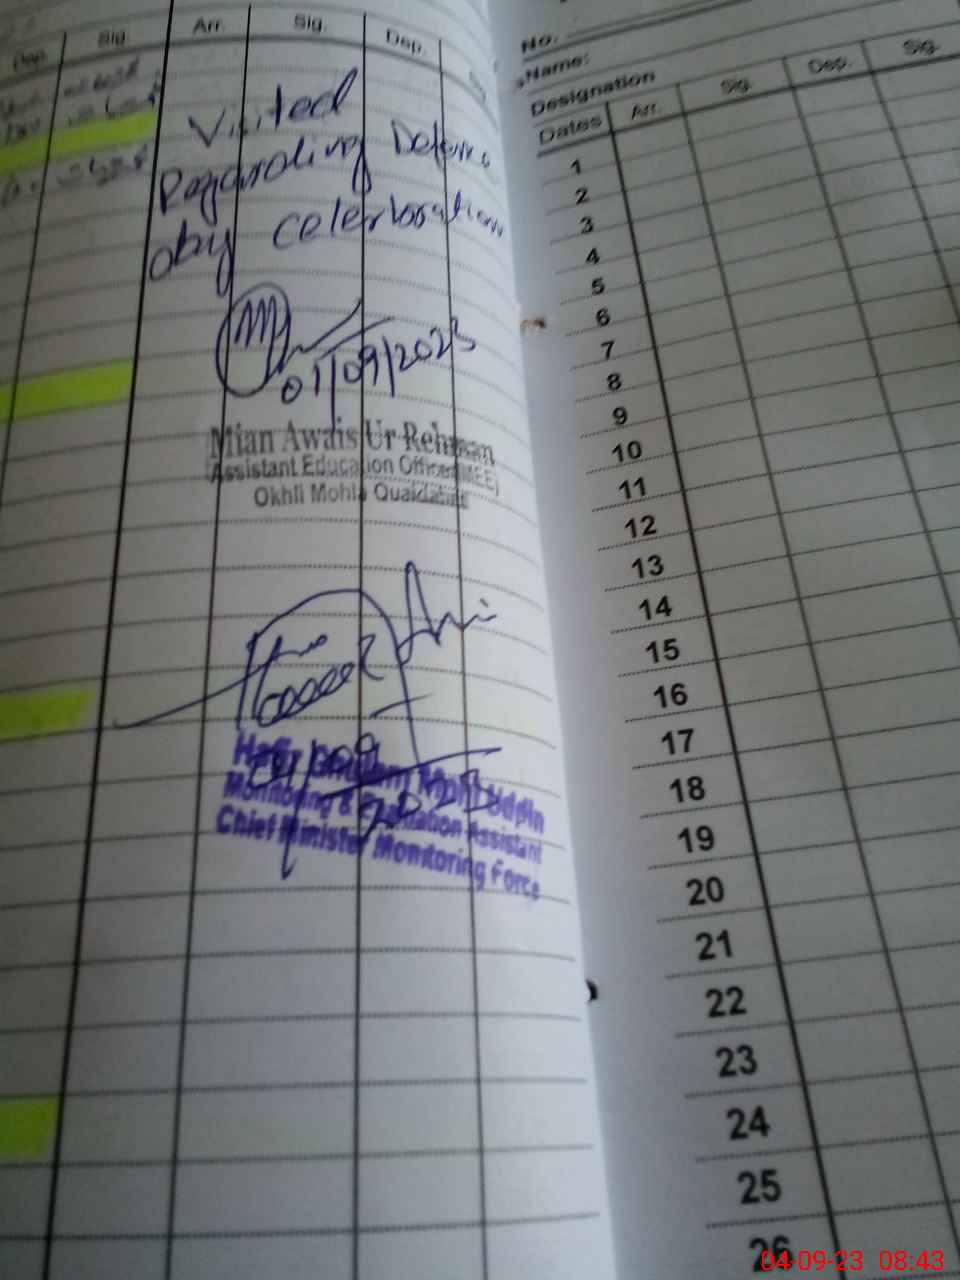 Dep. Sig. Arr. Sig. Dep.
Visited
Regarding Defence
day celerbration
01/09/2023
Mian Awais Ur Rehman
Assistant Education Officer(MEE)
Okhli Mohla Quaidabad
Hafiz Ghulam Mohi Uddin
Monitoring & Evaluation Assistant
Chief Minister Monitoring Force
2023
No.
Name:
Designation
Dates Arr. Sig Dep. Sig.
1
2
3
4
5
6
7
8
9
10
11
12
13
14
15
16
17
18
19
20
21
22
23
24
25
26
04-09-23 08:43